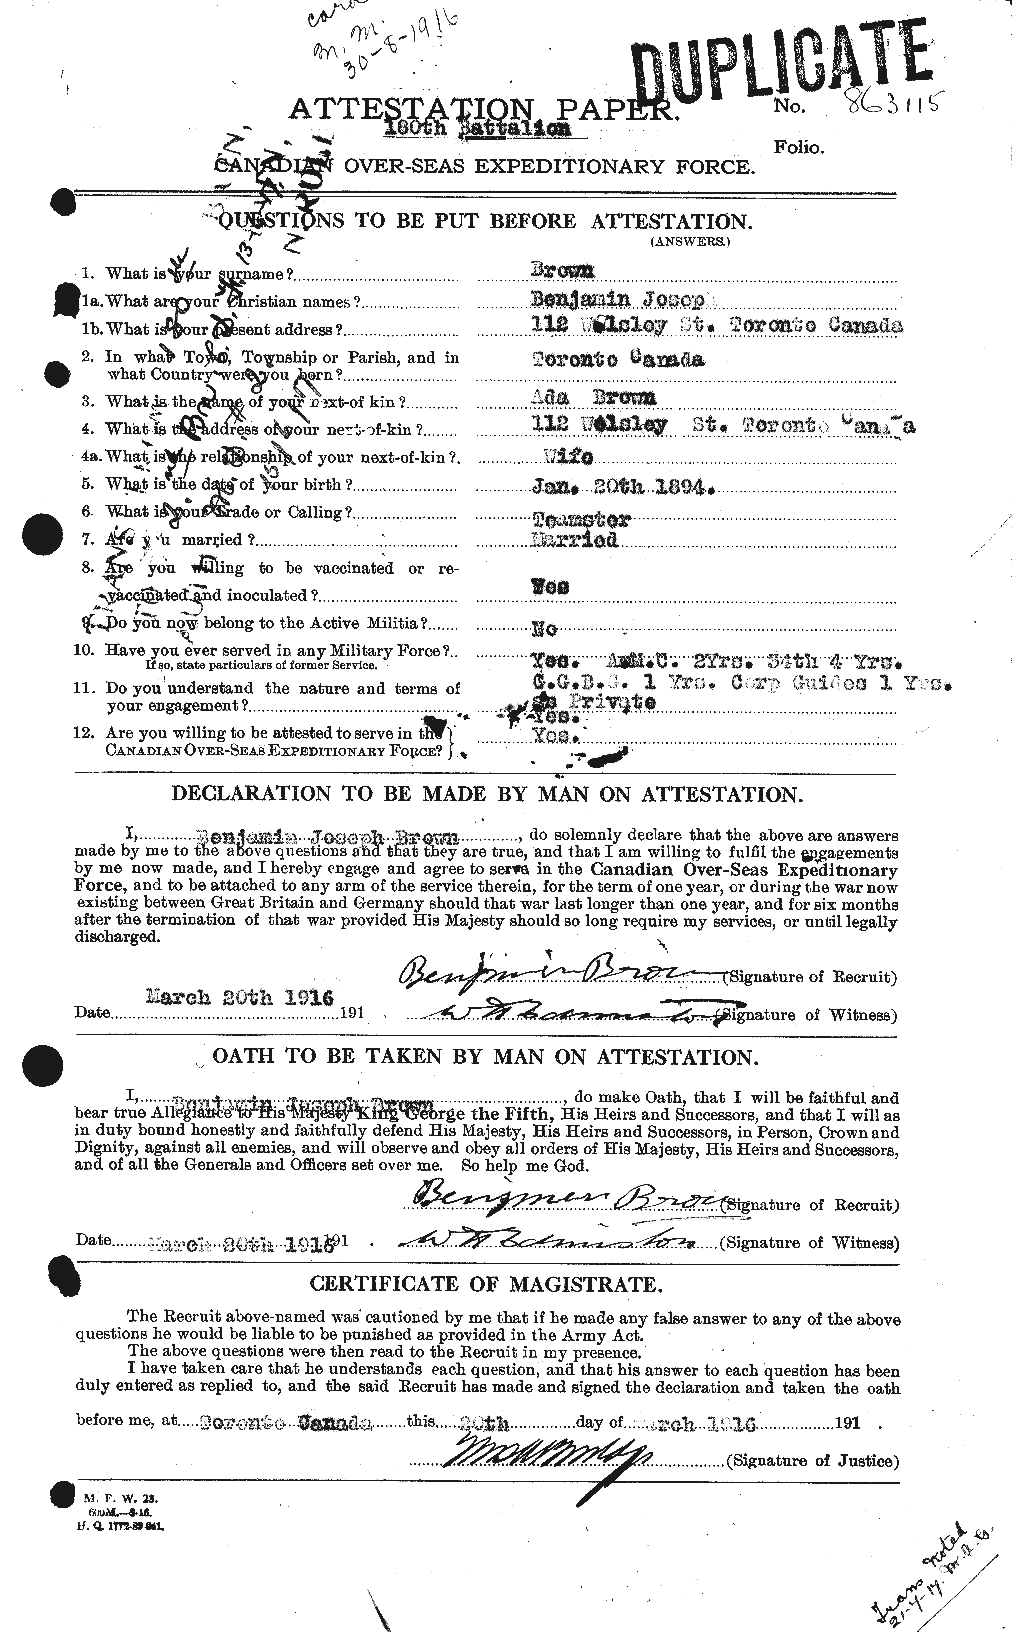 card
M.M.
30-8-1916
DUPLICATE
ATTESTATION PAPER.
No. 863115
180th Battalion
Folio.
CANADIAN OVER-SEAS EXPEDITIONARY FORCE.
QUESTIONS TO BE PUT BEFORE ATTESTATION.
(ANSWERS.)
1. What is your surname? Brown
1a. What are your Christian names? Benjamin Josep
1b. What is your present address? 112 Wolsley St. Toronto Canada
2. In what Town, Township or Parish, and in
what Country were you born? Toronto Canada
3. What is the name of your next-of kin? Ada Brown
4. What is the address of your next-of-kin? 112 Wolsley St. Toronto Canada
4a. What is the relationship of your next-of-kin? Wife
5. What is the date of your birth? Jan. 20th 1894.
6. What is your Trade or Calling? Teamster
7. Are you married? Married
8. Are you willing to be vaccinated or re-
vaccinated and inoculated? Yes
9. Do you now belong to the Active Militia? No
10. Have you ever served in any Military Force?
If so, state particulars of former Service.
Yes. A.M.C. 2Yrs. 34th 4 Yrs.
G.G.B.G. 1 Yrs. Corp Guides 1 Yrs.
as Private
11. Do you understand the nature and terms of
your engagement? Yes.
12. Are you willing to be attested to serve in the
CANADIAN OVER-SEAS EXPEDITIONARY FORCE? Yes.
DECLARATION TO BE MADE BY MAN ON ATTESTATION.
I, Benjamin Joseph Brown, do solemnly declare that the above are answers
made by me to the above questions and that they are true, and that I am willing to fulfil the engagements
by me now made, and I hereby engage and agree to serve in the Canadian Over-Seas Expeditionary
Force, and to be attached to any arm of the service therein, for the term of one year, or during the war now
existing between Great Britain and Germany should that war last longer than one year, and for six months
after the termination of that war provided His Majesty should so long require my services, or until legally
discharged.
Benjimin Brown (Signature of Recruit)
Date March 20th 1916 191 . W H Edmiston (Signature of Witness)
OATH TO BE TAKEN BY MAN ON ATTESTATION.
I, Benjamin Joseph Brown, do make Oath, that I will be faithful and
bear true Allegiance to His Majesty King George the Fifth, His Heirs and Successors, and that I will as
in duty bound honestly and faithfully defend His Majesty, His Heirs and Successors, in Person, Crown and
Dignity, against all enemies, and will observe and obey all orders of His Majesty, His Heirs and Successors,
and of all the Generals and Officers set over me. So help me God.
Bengmen Brown (Signature of Recruit)
Date March 20th 1916 191 . W H Edmiston (Signature of Witness)
CERTIFICATE OF MAGISTRATE.
The Recruit above-named was cautioned by me that if he made any false answer to any of the above
questions he would be liable to be punished as provided in the Army Act.
The above questions were then read to the Recruit in my presence.
I have taken care that he understands each question, and that his answer to each question has been
duly entered as replied to, and the said Recruit has made and signed the declaration and taken the oath
before me, at Toronto Canada this 20th day of March 1916 191 .
(Signature of Justice)
M. F. W. 23.
600M.—3-16.
H. Q. 1772-39-841.
Trans noted
21-4-17. M.D.G.